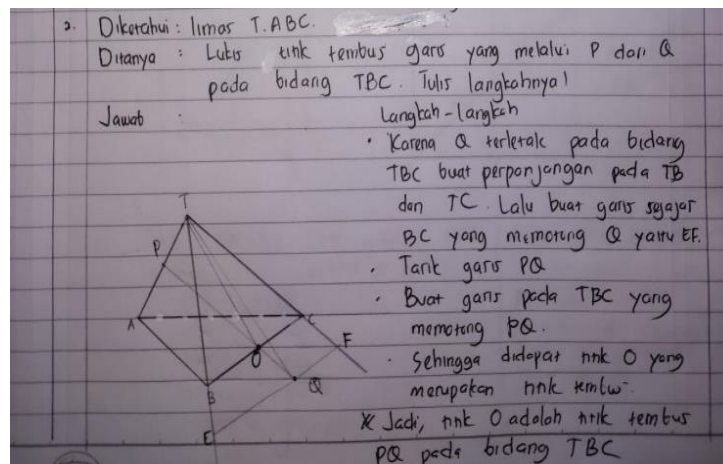 2. Diketahui : limas T.ABC.
Ditanya : Lukis titik tembus garis yang melalui P dan Q
pada bidang TBC. Tulis langkahnya!
Jawab :
Langkah-langkah
• Karena Q terletak pada bidang
TBC buat perpanjangan pada TB
dan TC. Lalu buat garis sejajar
BC yang memotong Q yaitu EF.
• Tarik garis PQ
• Buat garis pada TBC yang
memotong PQ.
• Sehingga didapat titik O yang
merupakan titik
* Jadi, titik O adalah titik tembus
PQ pada bidang TBC
T
P
A
C
O
F
B
Q
E